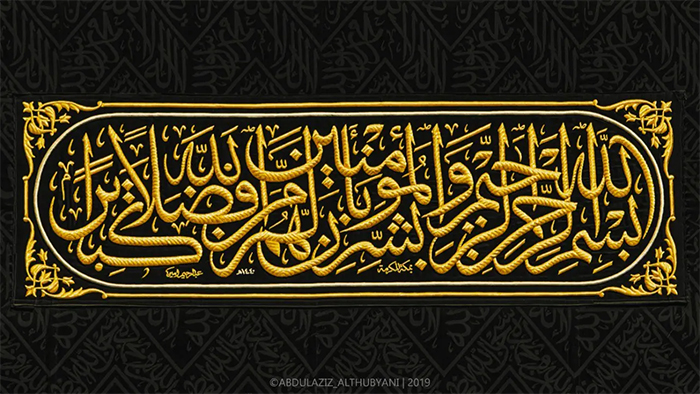 بسم الله الرحمن الرحيم وبشر المؤمنين بأن لهم من الله فضلا كبيرا
بمكة المكرمة
١٤٤٠هـ
©ABDULAZIZ_ALTHUBYANI | 2019